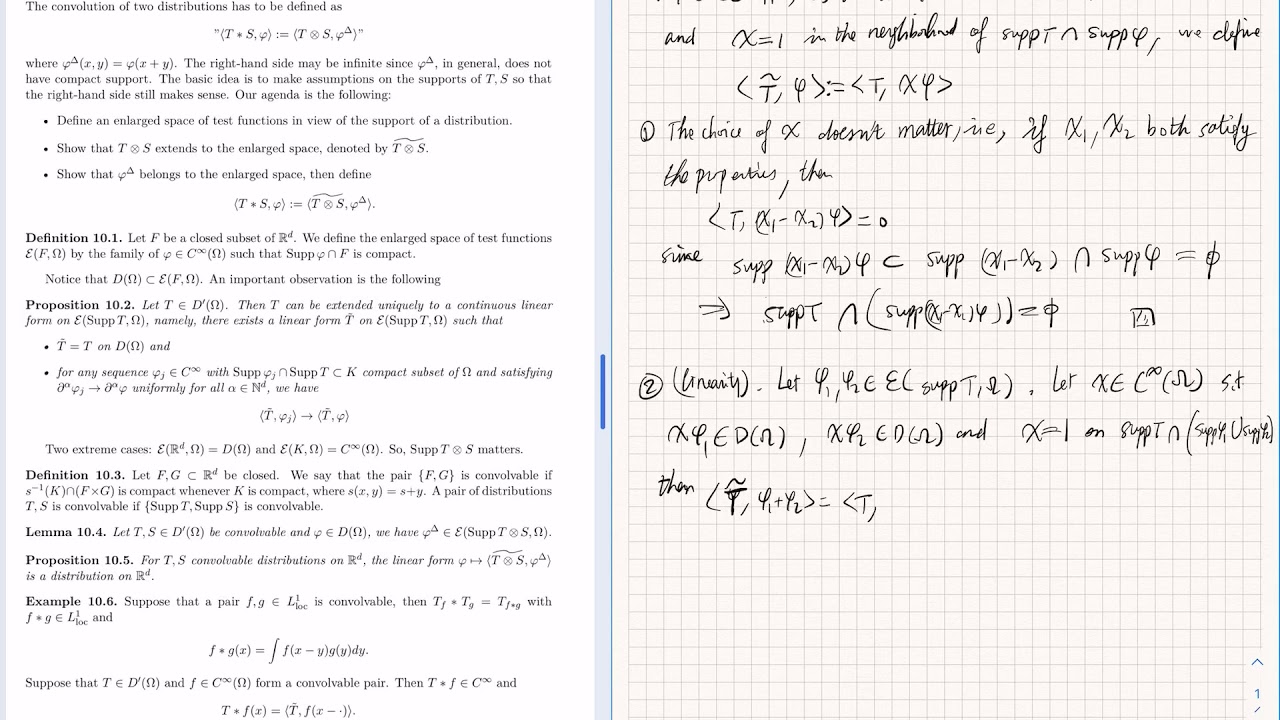 The convolution of two distributions has to be defined as
"⟨T ∗ S, φ⟩ := ⟨T ⊗ S, φ^Δ⟩"
where φ^Δ(x, y) = φ(x + y). The right-hand side may be infinite since φ^Δ, in general, does not
have compact support. The basic idea is to make assumptions on the supports of T, S so that
the right-hand side still makes sense. Our agenda is the following:
• Define an enlarged space of test functions in view of the support of a distribution.
• Show that T ⊗ S extends to the enlarged space, denoted by \widetilde{T ⊗ S}.
• Show that φ^Δ belongs to the enlarged space, then define
⟨T ∗ S, φ⟩ := ⟨\widetilde{T ⊗ S}, φ^Δ⟩.
Definition 10.1. Let F be a closed subset of ℝ^d. We define the enlarged space of test functions
ℰ(F, Ω) by the family of φ ∈ C^∞(Ω) such that Supp φ ∩ F is compact.
Notice that D(Ω) ⊂ ℰ(F, Ω). An important observation is the following
Proposition 10.2. Let T ∈ D′(Ω). Then T can be extended uniquely to a continuous linear
form on ℰ(Supp T, Ω), namely, there exists a linear form T̃ on ℰ(Supp T, Ω) such that
• T̃ = T on D(Ω) and
• for any sequence φ_j ∈ C^∞ with Supp φ_j ∩ Supp T ⊂ K compact subset of Ω and satisfying
∂^α φ_j → ∂^α φ uniformly for all α ∈ ℕ^d, we have
⟨T̃, φ_j⟩ → ⟨T̃, φ⟩
Two extreme cases: ℰ(ℝ^d, Ω) = D(Ω) and ℰ(K, Ω) = C^∞(Ω). So, Supp T ⊗ S matters.
Definition 10.3. Let F, G ⊂ ℝ^d be closed. We say that the pair {F, G} is convolvable if
s^{-1}(K)∩(F×G) is compact whenever K is compact, where s(x, y) = s+y. A pair of distributions
T, S is convolvable if {Supp T, Supp S} is convolvable.
Lemma 10.4. Let T, S ∈ D′(Ω) be convolvable and φ ∈ D(Ω), we have φ^Δ ∈ ℰ(Supp T ⊗ S, Ω).
Proposition 10.5. For T, S convolvable distributions on ℝ^d, the linear form φ ↦ ⟨\widetilde{T ⊗ S}, φ^Δ⟩
is a distribution on ℝ^d.
Example 10.6. Suppose that a pair f, g ∈ L^1_loc is convolvable, then T_f ∗ T_g = T_{f∗g} with
f ∗ g ∈ L^1_loc and
f ∗ g(x) = ∫ f(x − y)g(y)dy.
Suppose that T ∈ D′(Ω) and f ∈ C^∞(Ω) form a convolvable pair. Then T ∗ f ∈ C^∞ and
T ∗ f(x) = ⟨T̃, f(x − ·)⟩.
and χ=1 in the neighborhood of supp T ∩ supp φ, we define
⟨T̃, φ⟩ := ⟨T, χφ⟩
① The choice of χ doesn't matter, i.e, if χ₁, χ₂ both satisfy
the properties, then
⟨T, (χ₁−χ₂)φ⟩ = 0
since supp (χ₁−χ₂)φ ⊂ supp (χ₁−χ₂) ∩ supp φ = ϕ
⇒ supp T ∩ (supp(χ₁−χ₂)φ)) = ϕ
② (linearity). Let φ₁, φ₂ ∈ ℰ(supp T, Ω). Let χ ∈ C^∞(Ω) s.t
χφ₁ ∈ D(Ω), χφ₂ ∈ D(Ω) and χ=1 on supp T ∩ (supp φ₁ ∪ supp φ₂)
then ⟨T̃, φ₁+φ₂⟩ = ⟨T,
1